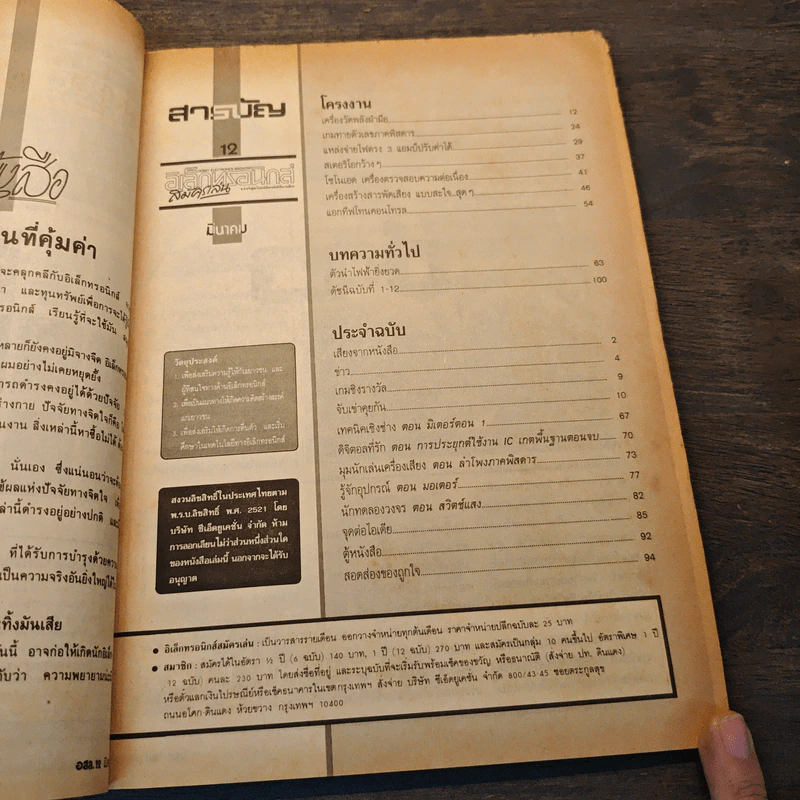 สือ
นที่คุ้มค่า
จะคลุกคลีกับอิเล็กทรอนิกส์
และทุนทรัพย์เพื่อการจะได้
รอนิกส์ เรียนรู้ที่จะใช้มัน
หลายก็ยังคงอยู่มิจางจืด
ผมอย่างไม่เคยหยุดยั้ง
ารถดำรงคงอยู่ได้ด้วยปัจจัย
างกาย ปัจจัยทางจิตใจก็คือ
นงาน สิ่งเหล่านี้หาซื้อไม่ได้
นั่นเอง ซึ่งแน่นอนว่าจะต้
ช้ผลแห่งปัจจัยทางจิตใจ
ล่านี้ดำรงอยู่อย่างปกติ
ที่ได้รับการบำรุงด้วยความ
เป็นความจริงอันยิ่งใหญ่
ะทิ้งมันเสีย
นนี้ อาจก่อให้เกิดนักอิเล็ก
กับว่า ความพยายาม
สารบัญ
12
อิเล็กทรอนิกส์
สมัครเล่น
มีนาคม
วัตถุประสงค์
1. เพื่อส่งเสริมความรู้ให้กับเยาวชน และ
ผู้ที่สนใจทางด้านอิเล็กทรอนิกส์
2. เพื่อเป็นแนวทางให้เกิดความคิดสร้างสรรค์
แก่เยาวชน
3. เพื่อส่งเสริมให้เกิดการตื่นตัว และเริ่ม
ศึกษาในเทคโนโลยีทางอิเล็กทรอนิกส์
สงวนลิขสิทธิ์ในประเทศไทยตาม
พ.ร.บ.ลิขสิทธิ์ พ.ศ. 2521 โดย
บริษัท ซีเอ็ดยูเคชั่น จำกัด ห้าม
การลอกเลียนไม่ว่าส่วนหนึ่งส่วนใด
ของหนังสือเล่มนี้ นอกจากจะได้รับ
อนุญาต
โครงงาน
เครื่องวัดพลังฝ่ามือ 12
เกมทายตัวเลขภาคพิสดาร 24
แหล่งจ่ายไฟตรง 3 แอมป์ปรับค่าได้ 29
สเตอริโอกว้างๆ 37
โซโนเอด เครื่องตรวจสอบความต่อเนื่อง 41
เครื่องสร้างสารพัดเสียง แบบสะใจ..สุดๆ 46
แอกทีฟโทนคอนโทรล 54
บทความทั่วไป
ตัวนำไฟฟ้ายิ่งยวด 63
ดัชนีฉบับที่ 1-12 100
ประจำฉบับ
เสียงจากหนังสือ 2
ข่าว 4
เกมชิงรางวัล 9
จับเข่าคุยกัน 10
เทคนิคเชิงช่าง ตอน มิเตอร์ตอน 1 67
ดิจิตอลที่รัก ตอน การประยุกต์ใช้งาน IC เกตพื้นฐานตอนจบ 70
มุมนักเล่นเครื่องเสียง ตอน ลำโพงภาคพิสดาร 73
รู้จักอุปกรณ์ ตอน มอเตอร์ 77
นักทดลองวงจร ตอน สวิตช์แสง 82
จุดต่อไอเดีย 85
ตู้หนังสือ 92
สอดส่องของถูกใจ 94
● อิเล็กทรอนิกส์สมัครเล่น : เป็นวารสารรายเดือน ออกวางจำหน่ายทุกต้นเดือน ราคาจำหน่ายปลีกฉบับละ 25 บาท
● สมาชิก : สมัครได้ในอัตรา ½ ปี (6 ฉบับ) 140 บาท, 1 ปี (12 ฉบับ) 270 บาท และสมัครเป็นกลุ่ม 10 คนขึ้นไป อัตราพิเศษ 1 ปี
12 ฉบับ) คนละ 230 บาท โดยส่งชื่อที่อยู่ และระบุฉบับที่จะเริ่มรับพร้อมเช็คของขวัญ หรือธนาณัติ (สั่งจ่าย ปท. ดินแดง)
หรือตั๋วแลกเงินไปรษณีย์หรือเช็คธนาคารในเขตกรุงเทพฯ สั่งจ่าย บริษัท ซีเอ็ดยูเคชั่น จำกัด 800/43-45 ซอยตระกูลสุข
ถนนอโศก-ดินแดง ห้วยขวาง กรุงเทพฯ 10400
อสล.12